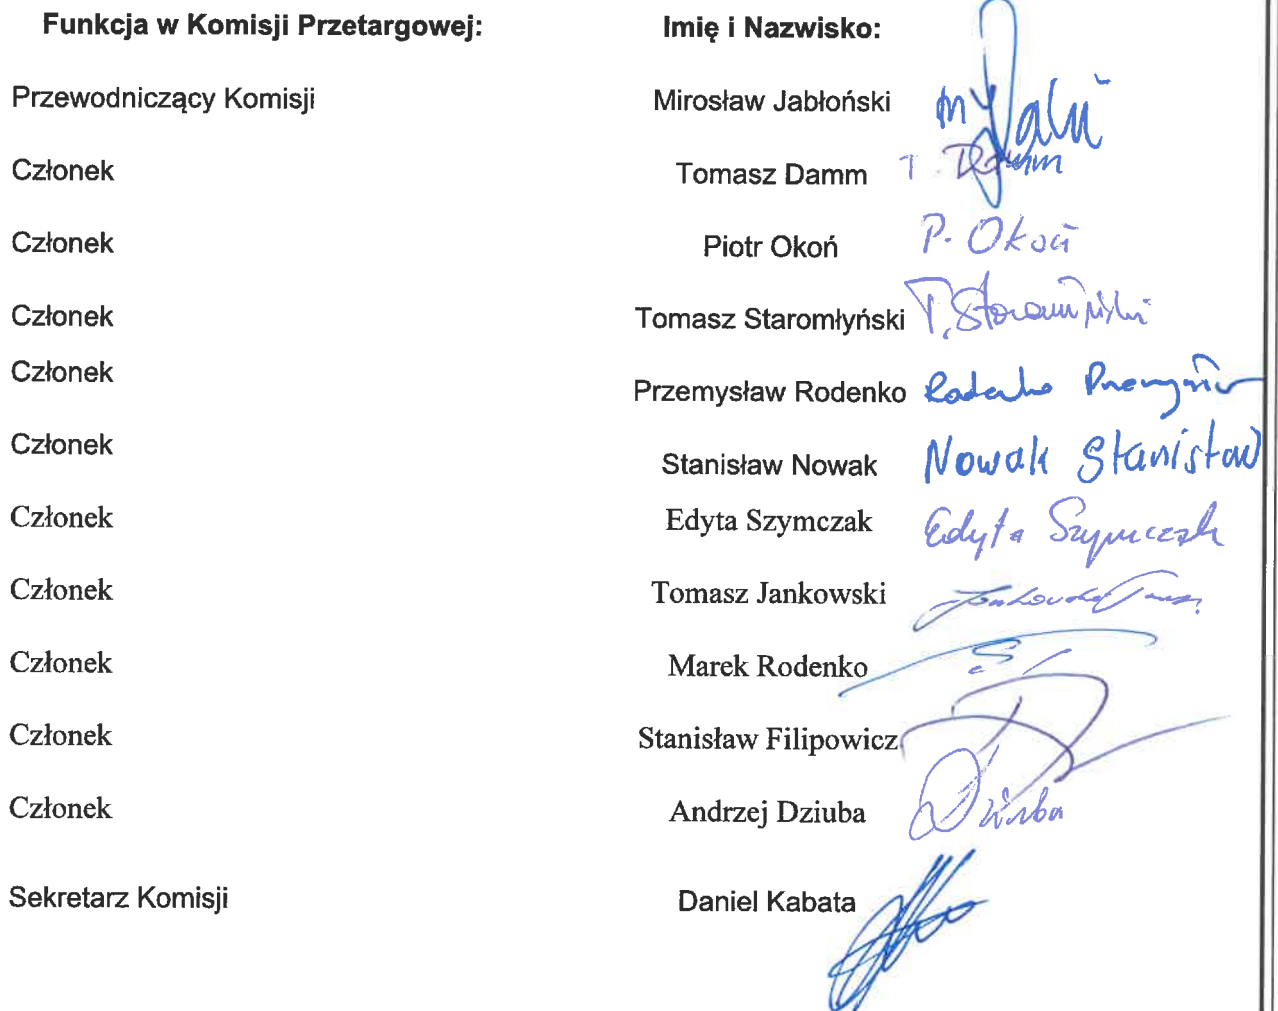 Funkcja w Komisji Przetargowej: Imię i Nazwisko:
Przewodniczący Komisji Mirosław Jabłoński
Członek Tomasz Damm T. Damm
Członek Piotr Okoń P. Okoń
Członek Tomasz Staromłyński T. Staromłyński
Członek Przemysław Rodenko Rodenko Przemysław
Członek Stanisław Nowak Nowak Stanisław
Członek Edyta Szymczak Edyta Szymczak
Członek Tomasz Jankowski Jankowski
Członek Marek Rodenko
Członek Stanisław Filipowicz
Członek Andrzej Dziuba Dziuba
Sekretarz Komisji Daniel Kabata